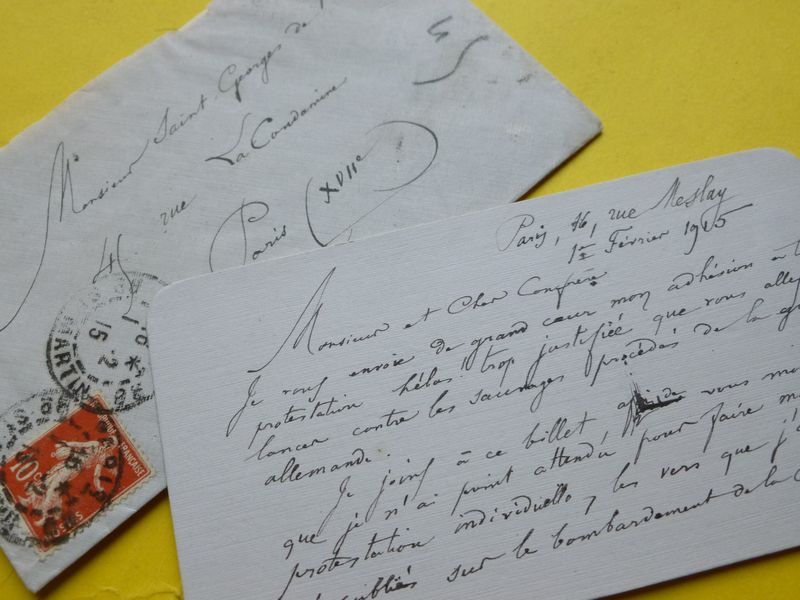 Monsieur Saint-Georges de
45 rue La Condamine
Paris (XVIIe)
PARIS
MARTIN
15 2
10c
POSTES
FRANÇAISE
Paris, 16, rue Meslay
1er Février 1915
Monsieur et Cher Confrère
Je vous envoie de grand cœur mon adhésion à
protestation hélas! trop justifiée que vous allez
lancer contre les sauvages procédés de la
allemande.
Je joins à ce billet afin de vous
que je n'ai point attendu pour faire
protestation individuelle, les vers que j'
publiés sur le bombardement de la